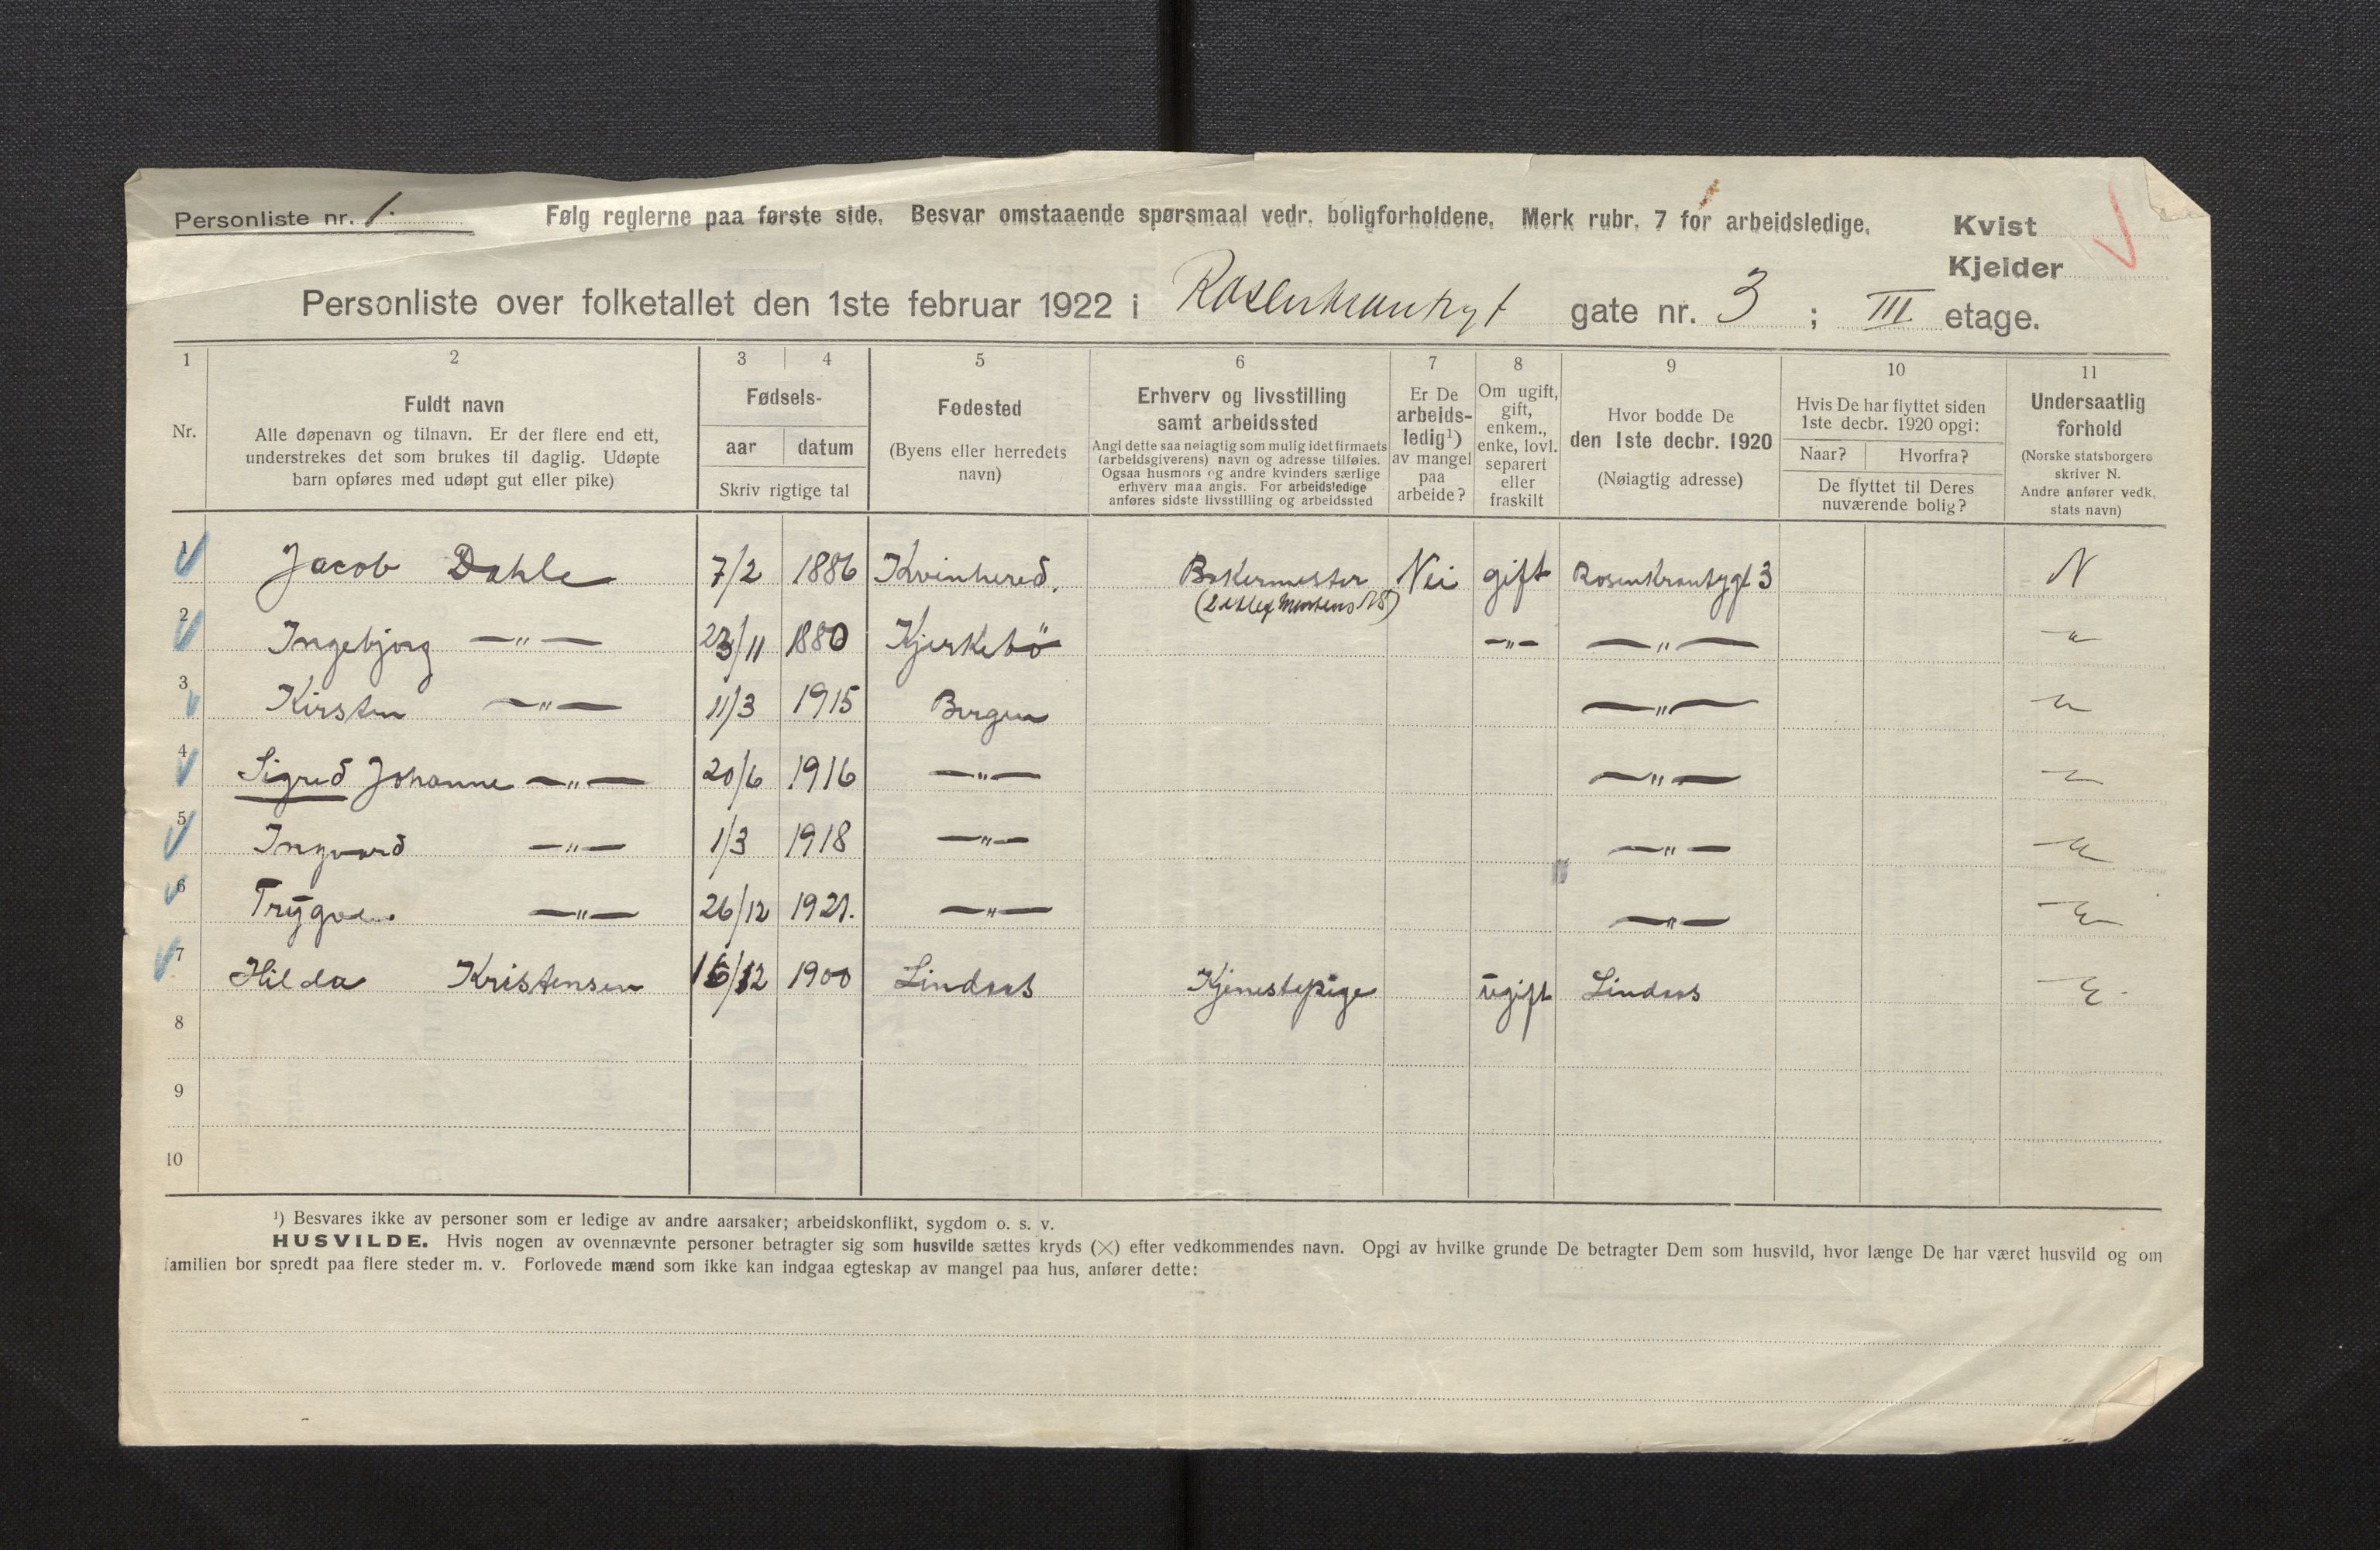 Personliste nr. 1. Følg reglerne paa første side. Besvar omstaaende spørsmaal vedr. boligforholdene. Merk rubr. 7 for arbeidsledige. Kvist
Kjelder
Personliste over folketallet den 1ste februar 1922 i Rosenkrantzgt gate nr. 3 ; III etage.
1 2 3 4 5 6 7 8 9 10 11
Nr.
Fuldt navn
Alle døpenavn og tilnavn. Er der flere end ett,
understrekes det som brukes til daglig. Udøpte
barn opføres med udøpt gut eller pike)
Fødsels-
aar datum
Skriv rigtige tal
Fødested
(Byens eller herredets
navn)
Erhverv og livsstilling
samt arbeidssted
Angi dette saa nøiagtig som mulig idet firmaets
(arbeidsgiverens) navn og adresse tilføies.
Ogsaa husmors og andre kvinders særlige
erhverv maa angis. For arbeidsledige
anføres sidste livsstilling og arbeidssted
Er De
arbeids-
ledig¹)
av mangel
paa
arbeide?
Om ugift,
gift,
enkem.,
enke, lovl.
separert
eller
fraskilt
Hvor bodde De
den 1ste decbr. 1920
(Nøiagtig adresse)
Hvis De har flyttet siden
1ste decbr. 1920 opgi:
Naar? Hvorfra?
De flyttet til Deres
nuværende bolig?
Undersaatlig
forhold
(Norske statsborgere
skriver N.
Andre anfører vedk.
stats navn)
1 Jacob Dahle 7/2 1886 Kvinhered. Bakermester Nei gift Rosenkrantzgt 3 N
2 Ingebjørg —"— 23/11 1880 Kjerkebö —"— —"— —"—
3 Kirsten —"— 11/3 1915 Bergen —"— —"—
4 Sigred Johanne —"— 20/6 1916 —"— —"— —"—
5 Ingvard —"— 1/3 1918 —"— —"— —"—
6 Trygve. —"— 26/12 1921. —"— —"— —"—
7 Hilda Kristensen 16/12 1900 Lindaas Tjenestepige ugift Lindaas —"—
8
9
10
¹) Besvares ikke av personer som er ledige av andre aarsaker; arbeidskonflikt, sygdom o. s. v.
HUSVILDE. Hvis nogen av ovennævnte personer betragter sig som husvilde sættes kryds (×) efter vedkommendes navn. Opgi av hvilke grunde De betragter Dem som husvild, hvor længe De har været husvild og om
familien bor spredt paa flere steder m. v. Forlovede mænd som ikke kan indgaa egteskap av mangel paa hus, anfører dette: